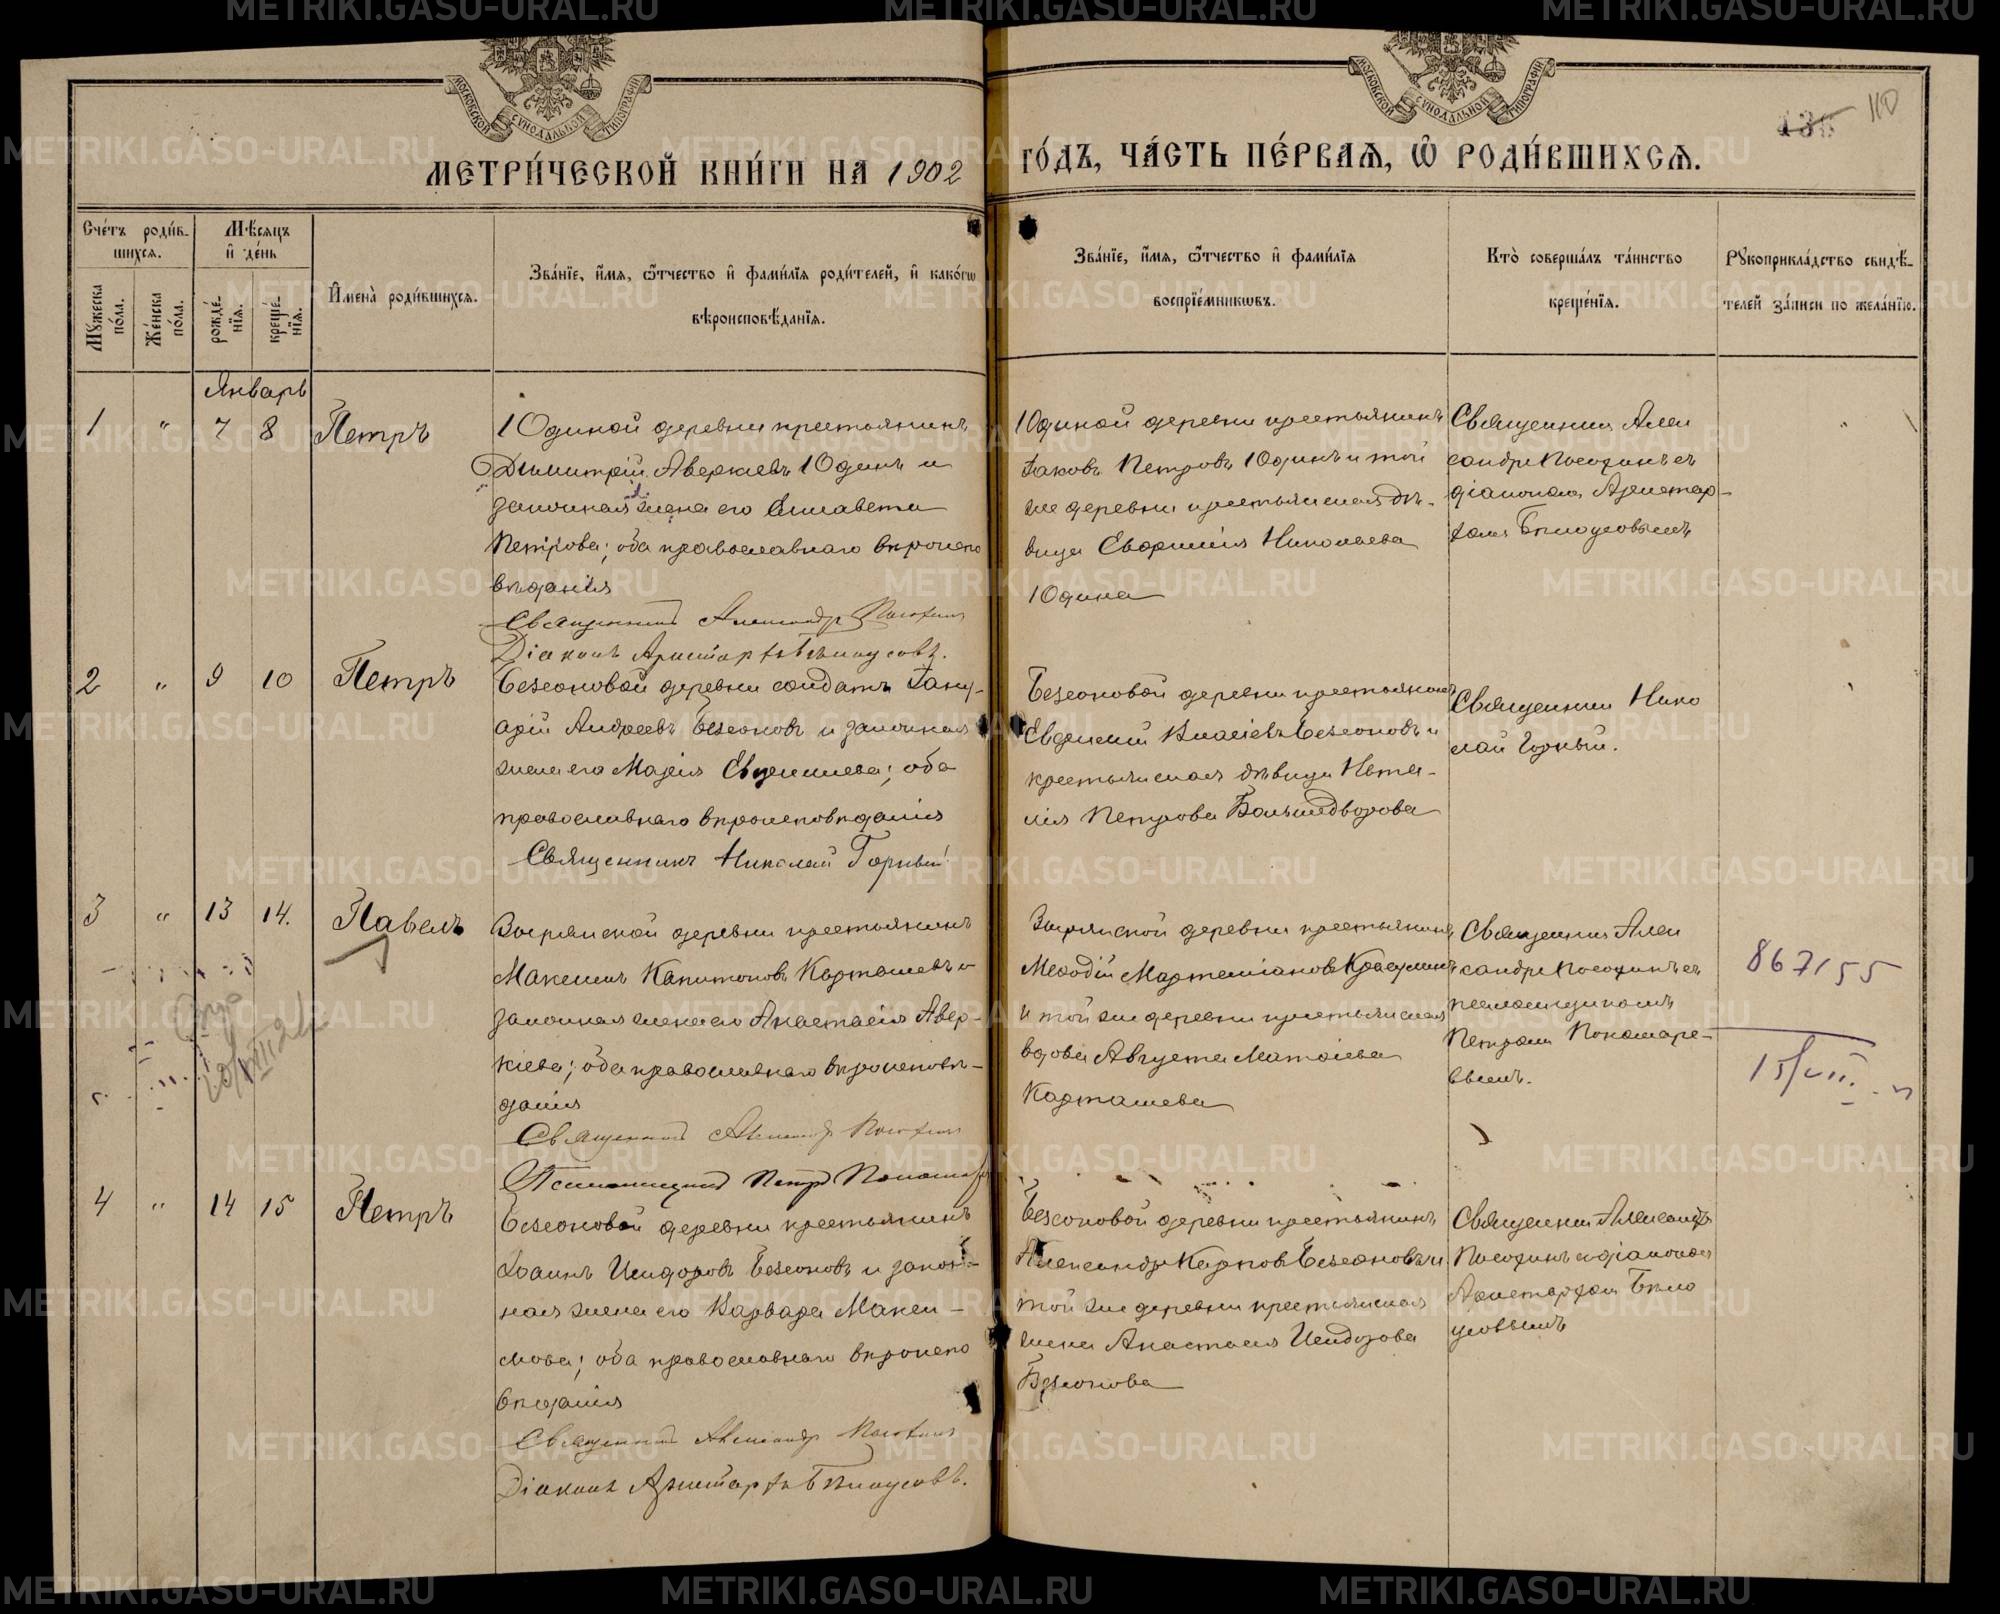 МОСКОВСКОЙ СѴНОДАЛЬНОЙ ТИПОГРАФІИ
МОСКОВСКОЙ СѴНОДАЛЬНОЙ ТИПОГРАФІИ
110
МЕТРИ́ЧЕСКОЙ КНИ́ГИ НА 1902
ГО́ДЪ, ЧА́СТЬ ПЕ́РВАѦ, Ѽ РОДИ́ВШИХСѦ.
Сче́тъ роди́в-
шихсѧ.
Мѣ́сяцъ
и҆ де́нь
Мꙋ́жеска
по́ла.
Же́нска
по́ла.
рожде́-
нїѧ.
креще́-
нїѧ.
И҆мена̀ роди́вшихсѧ.
Зва́нїе, и҆́мѧ, ѻ҆́тчество и҆ фами́лїѧ роди́телей, и҆ како́гѡ
вѣроисповѣ́данїѧ.
Зва́нїе, и҆́мѧ, ѻ҆́тчество и҆ фами́лїѧ
воспрїе́мникѡвъ.
Кто̀ соверша́лъ та́инство
креще́нїѧ.
Рꙋкоприкла́дство свидѣ́-
телей за́писи по жела́нїю.
Январь
1 " 7 8 Петръ
Юдиной деревни крестьянинъ
Димитрій Аверкіевъ Юдинъ и
законная жена его Елисавета
Петрова; оба православнаго вѣроиспо
вѣданія
Священникъ Александръ Посохин
Діаконъ Аристархъ Бѣлоусовъ.
Юдиной деревни крестьянинъ
Іаковъ Петровъ Юдинъ и той
же деревни крестьянская дѣ-
вица Евфимія Николаева
Юдина
Священник Алек
сандръ Посохинъ съ
діакономъ Аристар-
хомъ Бѣлоусовымъ
2 " 9 10 Петръ
Безсоновой деревни солдатъ Іану-
арій Андреевъ Безсоновъ и законная
жена его Марія Евфимиева; оба
православнаго вѣроисповѣданія
Священникъ Николай Горный
Безсоновой деревни крестьянинъ
Евфимій Власіевъ Безсоновъ и
крестьянская дѣвица Ната-
лія Петрова Большедворова
Священник Нико
лай Горный.
3 " 13 14. Павелъ
деревни крестьянинъ
Максимъ Капитоновъ Карташевъ и
законная жена его Анастасія Авер-
кіева; оба православнаго вѣроисповѣ-
данія
Священникъ Александръ Посохин
Псаломщикъ Петръ Пономарев
деревни крестьянинъ
Меѳодій Мартеміановъ Красулинъ
и той же деревни крестьянская
вдова Августа Матѳіева
Карташева
Священник Алек
сандръ Посохинъ съ
псаломщикомъ
Петромъ Пономаре-
вымъ.
867155
15/VII.
4 " 14 15 Петръ
Безсоновой деревни крестьянинъ
Іоаннъ Исидоровъ Безсоновъ и закон-
ная жена его Варвара Макси-
мова; оба православнаго вѣроиспо
вѣданія
Священникъ Александръ Посохин
Діаконъ Аристархъ Бѣлоусовъ.
Безсоновой деревни крестьянинъ
Александръ Карповъ Безсоновъ и
той же деревни крестьянская
жена Анастасія Исидорова
Безсонова
Священник Александръ
Посохинъ съ діакономъ
Аристархом Бѣло
усовымъ
METRIKI.GASO-URAL.RU